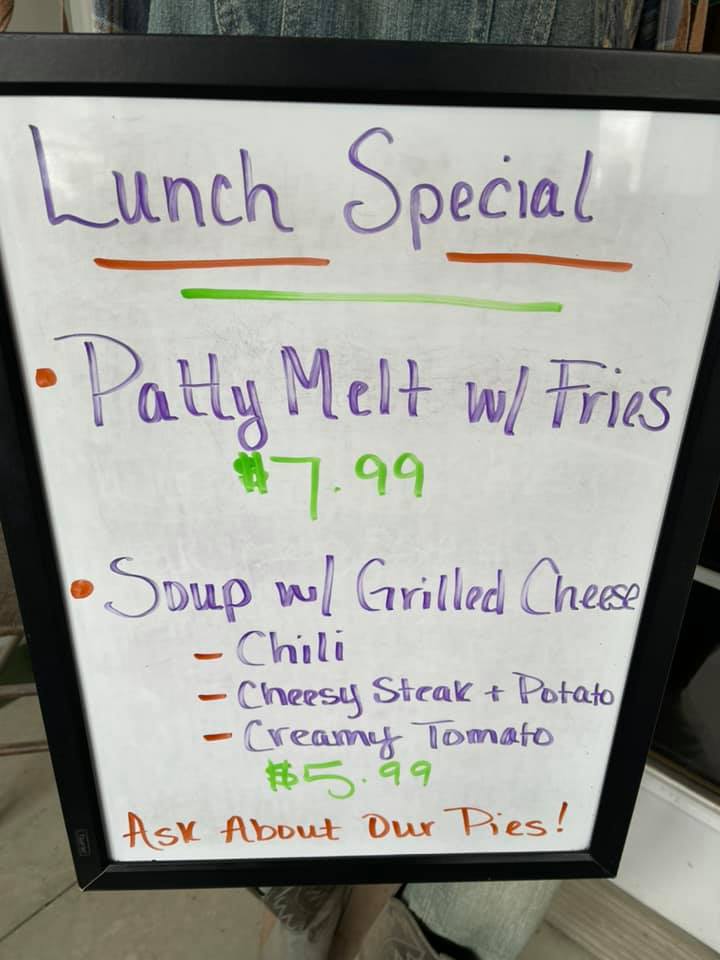 Lunch Special
• Patty Melt w/ Fries
$7.99
• Soup w/ Grilled Cheese
- Chili
- Cheesy Steak + Potato
- Creamy Tomato
$5.99
Ask About Our Pies!